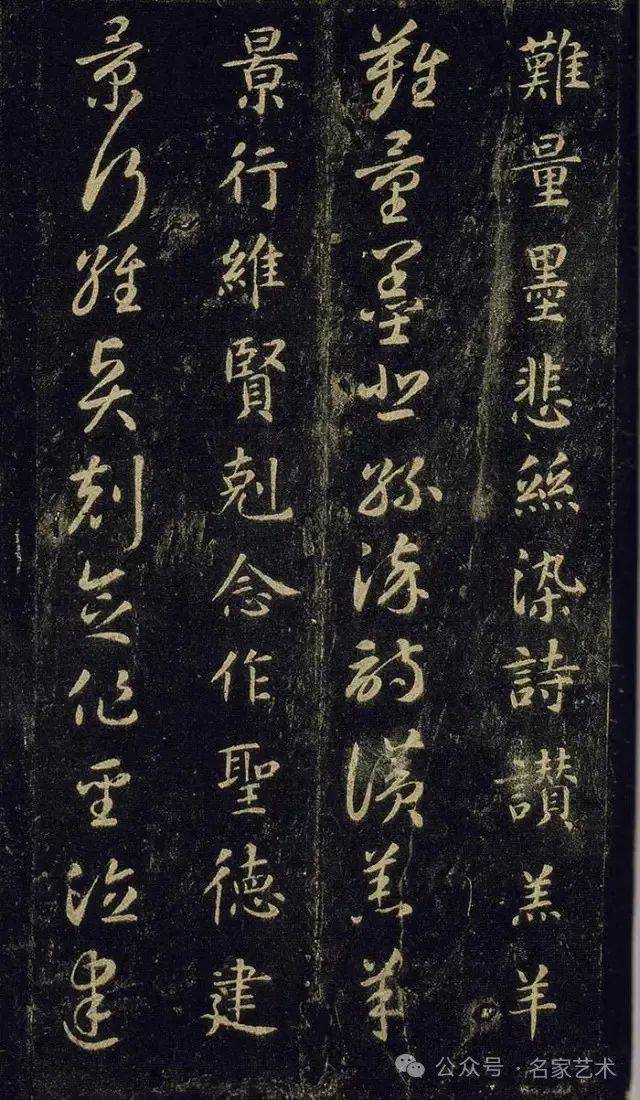 難量墨悲絲染詩讃羔羊
難量墨悲絲染詩讃羔羊
景行維賢剋念作聖德建
景行維賢剋念作聖德建
公众号·名家艺术